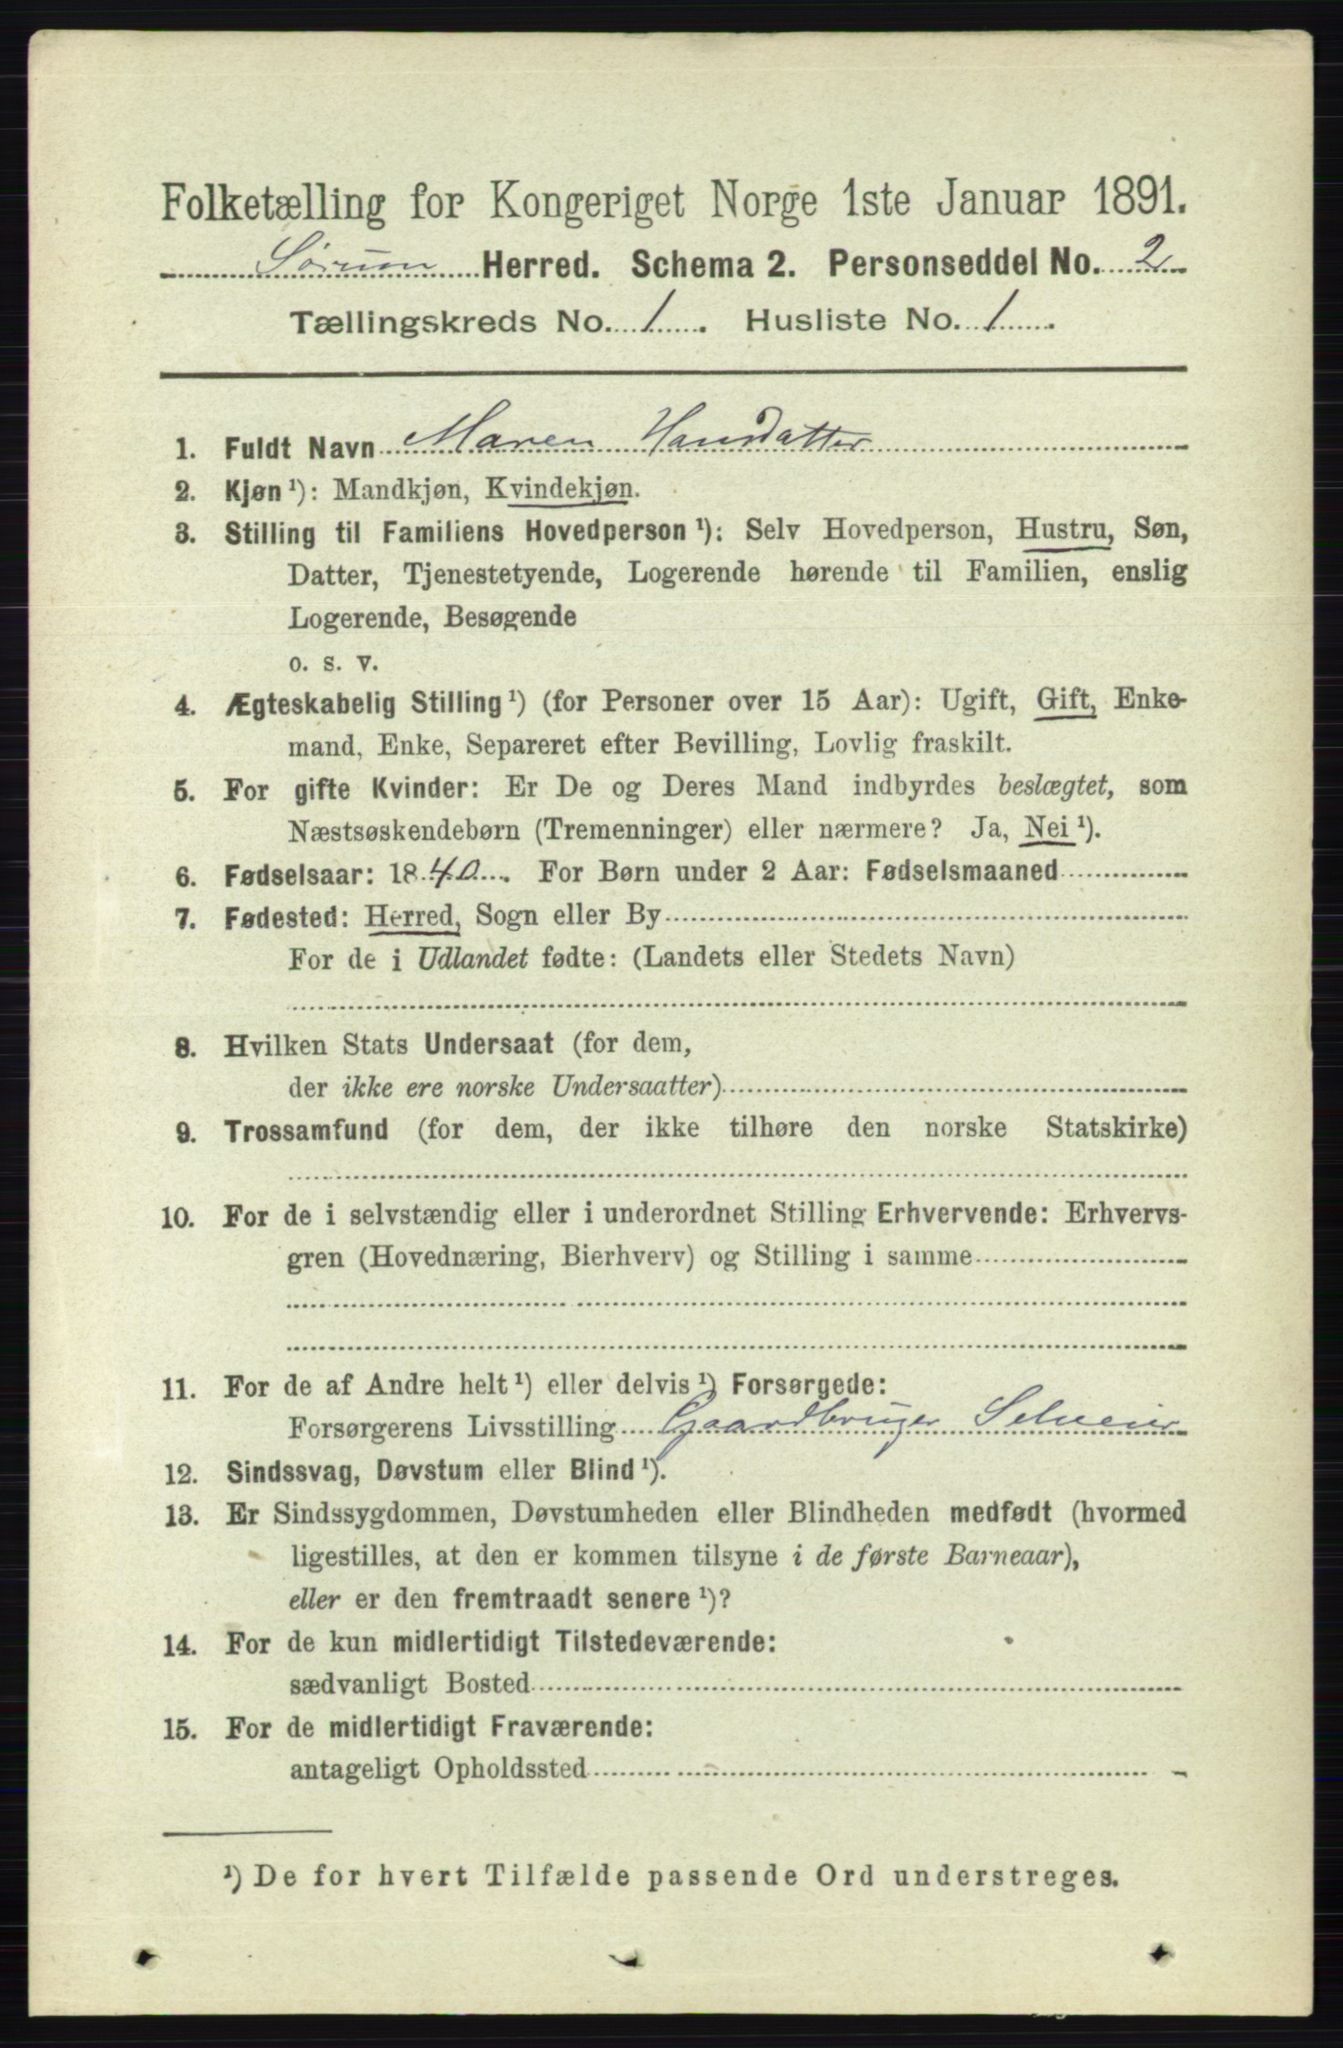 Folketælling for Kongeriget Norge 1ste Januar 1891.
Sørum Herred. Schema 2. Personseddel No. 2
Tællingskreds No. 1. Husliste No. 1.
1. Fuldt Navn Maren Hansdatter
2. Kjøn ¹): Mandkjøn, Kvindekjøn.
3. Stilling til Familiens Hovedperson ¹): Selv Hovedperson, Hustru, Søn,
Datter, Tjenestetyende, Logerende hørende til Familien, enslig
Logerende, Besøgende
o. s. v.
4. Ægteskabelig Stilling ¹) (for Personer over 15 Aar): Ugift, Gift, Enke-
mand, Enke, Separeret efter Bevilling, Lovlig fraskilt.
5. For gifte Kvinder: Er De og Deres Mand indbyrdes beslægtet, som
Næstsøskendebørn (Tremenninger) eller nærmere? Ja, Nei ¹).
6. Fødselsaar: 1840. For Børn under 2 Aar: Fødselsmaaned
7. Fødested: Herred, Sogn eller By
For de i Udlandet fødte: (Landets eller Stedets Navn)
8. Hvilken Stats Undersaat (for dem,
der ikke ere norske Undersaatter)
9. Trossamfund (for dem, der ikke tilhøre den norske Statskirke)
10. For de i selvstændig eller i underordnet Stilling Erhvervende: Erhvervs-
gren (Hovednæring, Bierhverv) og Stilling i samme
11. For de af Andre helt ¹) eller delvis ¹) Forsørgede:
Forsørgerens Livsstilling Gaardbruger Selveier
12. Sindssvag, Døvstum eller Blind ¹).
13. Er Sindssygdommen, Døvstumheden eller Blindheden medfødt (hvormed
ligestilles, at den er kommen tilsyne i de første Barneaar),
eller er den fremtraadt senere ¹)?
14. For de kun midlertidigt Tilstedeværende:
sædvanligt Bosted
15. For de midlertidigt Fraværende:
antageligt Opholdssted
¹) De for hvert Tilfælde passende Ord understreges.